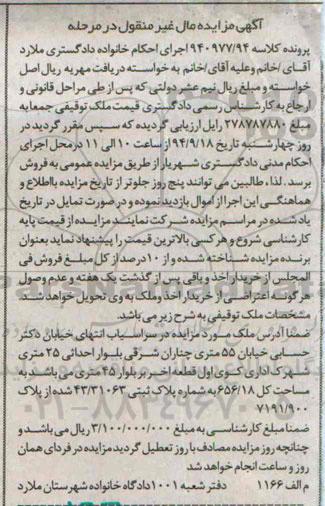 آگهی مزایده مال غیر منقول در مرحله
پرونده کلاسه ۹۴۰۹۷۷/۹۴ اجرای احکام خانواده دادگستری ملارد
آقای/خانم وعلیه آقای/خانم به خواسته دریافت مهریه ریال اصل
خواسته و مبلغ ریال نیم عشر دولتی که پس از طی مراحل قانونی و
ارجاع به کارشناس رسمی دادگستری قیمت ملک توقیفی جمعا به
مبلغ ۲۷۸۷۸۷۸۸۰ رایل ارزیابی گردیده که سپس مقرر گردید در
روز چهارشنبه تاریخ ۹۴/۹/۱۸ از ساعت ۱۰ الی ۱۱ در محل اجرای
احکام مدنی دادگستری شهریار از طریق مزایده عمومی به فروش
برسد. لذا، طالبین می توانند پنج روز جلوتر از تاریخ مزایده بااطلاع و
هماهنگی این اجرا از اموال بازدید نموده و در صورت تمایل در تاریخ
یاد شده در مراسم مزایده شرکت نمایند مزایده از قیمت پایه
کارشناسی شروع و هر کسی بالاترین قیمت را پیشنهاد نماید بعنوان
برنده مزایده شناخته شده و از ۱۰ درصد از کل مبلغ فروش فی
المجلس از خریدار اخذ و باقی پس از گذشت یک هفته و عدم وصول
هر گونه اعتراضی از خریدار اخذ وملک به وی تحویل خواهد شد.
مشخصات ملک توقیفی به شرح زیر می باشد.
ضمنا آدرس ملک مورد مزایده در سرآسیاب انتهای خیابان دکتر
حسابی خیابان ۵۵ متری چناران شرقی بلوار احداثی ۲۵ متری
شهرک اداری کوی اول قطعه آخر بر بلوار ۴۵ متری می باشد به
مساحت کل ۶۵۶/۱۸ به شماره پلاک ثبتی ۴۳/۳۱۰۶۳ شده از پلاک
۷۱۹۱/۹۰۰
ضمنا مبلغ کارشناسی به مبلغ ۳/۱۰۰/۰۰۰/۰۰۰ ریال می باشد و
چنانچه روز مزایده مصادف با روز تعطیل گردید مزایده در فردای همان
روز و ساعت انجام خواهد شد
م الف ۱۱۶۶ دفتر شعبه ۱۰۰۱ دادگاه خانواده شهرستان ملارد
ParsNamadData
۰۲۱-۸۸۳۴۹۶۷۰-۵